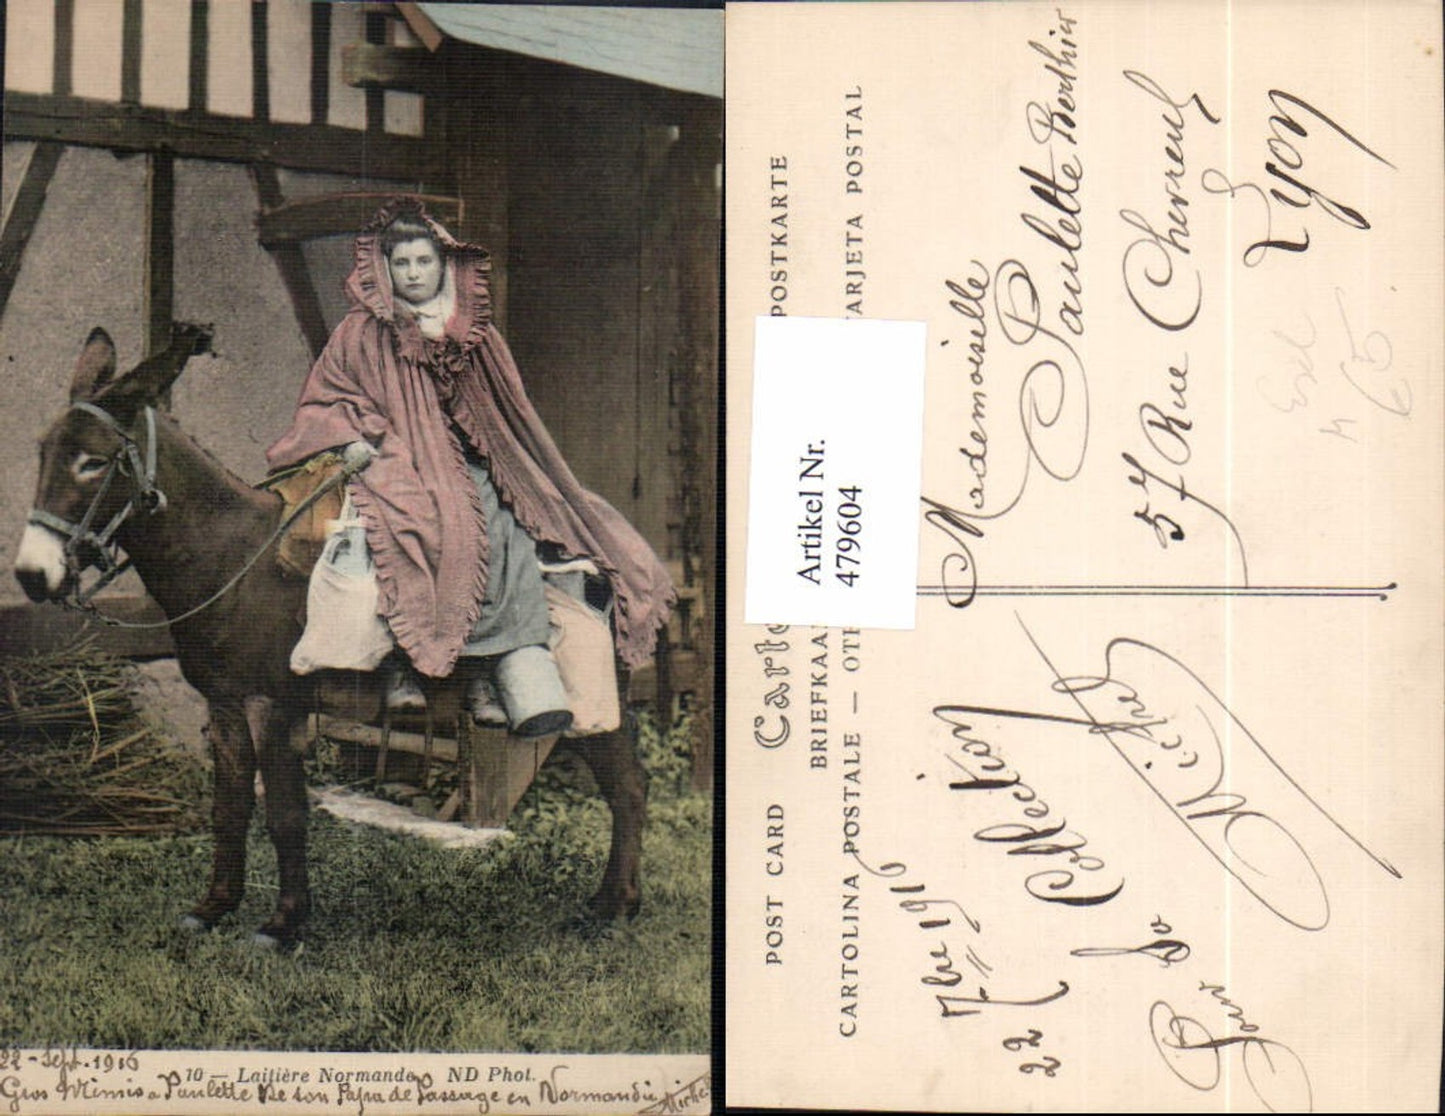 22 - Sept. 1916
10 — Laitière Normande ND Phot.
Gros Mimis a Paulette De son Papa de Passage en Normandie Michel
POST CARD Carte POSTKARTE
BRIEFKAA
CARTOLINA POSTALE — OT ARJETA POSTAL
Artikel Nr.
479604
Mademoiselle
Paulette Berthier
57 Rue Chevreul
Lyon
22 7bre 1916
Pour la Collection
Michel
65